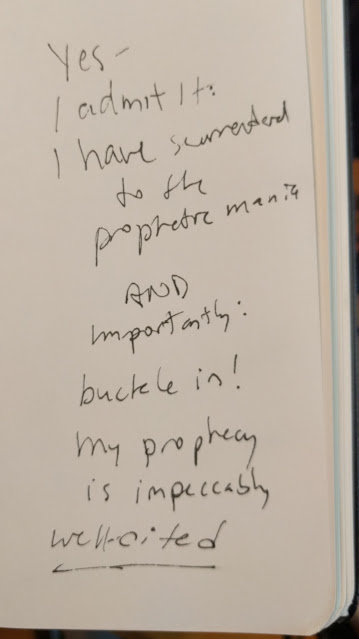 Yes-
I admit it:
I have surrendered
to the
prophetic mania
AND
importantly:
buckle in!
my prophecy
is impeccably
well-cited